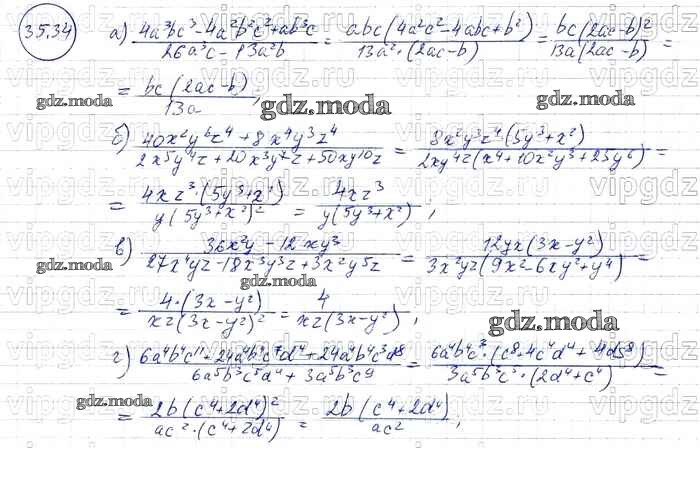 35.34 а) (4a³bc³ - 4a²b²c² + ab³c) / (26a³c - 13a²b) = abc(4a²c² - 4abc + b²) / 13a²·(2ac-b) = bc(2ac-b)² / 13a(2ac-b) =
= bc(2ac-b) / 13a,
б) (40x²y⁶z⁴ + 8x⁴y³z⁴) / (2x⁵y⁴z + 20x³y⁷z + 50xy¹⁰z) = 8x²y³z⁴·(5y³+x²) / 2xy⁴z(x⁴+10x²y³+25y⁶) =
= 4xz³·(5y³+x²) / y(5y³+x²)² = 4xz³ / y(5y³+x²) ;
в) (36x²y - 12xy³) / (27x⁴yz - 18x³y³z + 3x²y⁵z) = 12yx(3x-y²) / 3x²yz(9x²-6xy²+y⁴) =
= 4·(3x-y²) / xz(3x-y²)² = 4 / xz(3x-y²) ,
г) (6a⁴b⁴c¹¹ + 24a⁴b⁴c⁷d⁴ + 24a⁴b⁴c³d⁸) / (6a⁵b³c⁵d⁴ + 3a⁵b³c⁹) = 6a⁴b⁴c³·(c⁸+4c⁴d⁴+4d⁸) / 3a⁵b³c⁵·(2d⁴+c⁴) =
= 2b(c⁴+2d⁴)² / ac²·(c⁴+2d⁴) = 2b(c⁴+2d⁴) / ac² ,
gdz.moda
gdz.moda
gdz.moda
gdz.moda
gdz.moda
gdz.moda
gdz.moda
vipgdz.ru